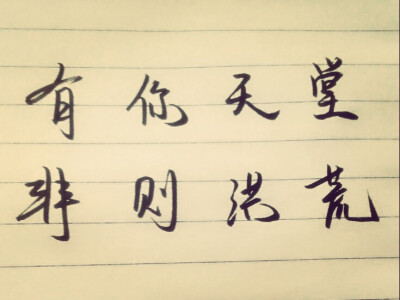 有你天堂
非则洪荒